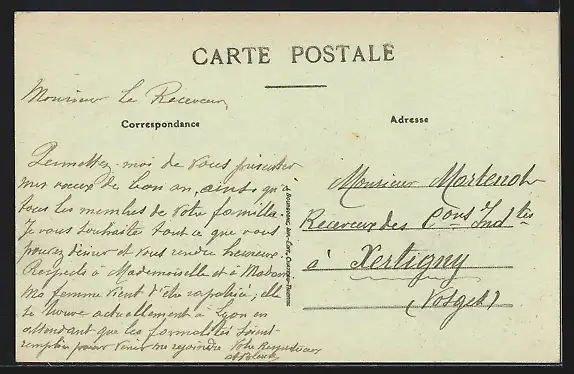 CARTE POSTALE
Monsieur Le Receveur,
Correspondance
Permettez-moi de vous présenter
mes vœux de bon an, ainsi qu'à
tous les membres de votre famille.
Je vous souhaite tout ce que vous
pouvez désirer et vous rendre heureux.
Respects à Mademoiselle et à Madame
Ma femme vient d'être rapatriée; elle
se trouve actuellement à Lyon en
attendant que les formalités soient
remplies pour venir me rejoindre Votre
Adresse
Monsieur Martenot
Receveur des Cons Indtes
à Xertigny
(Vosges)